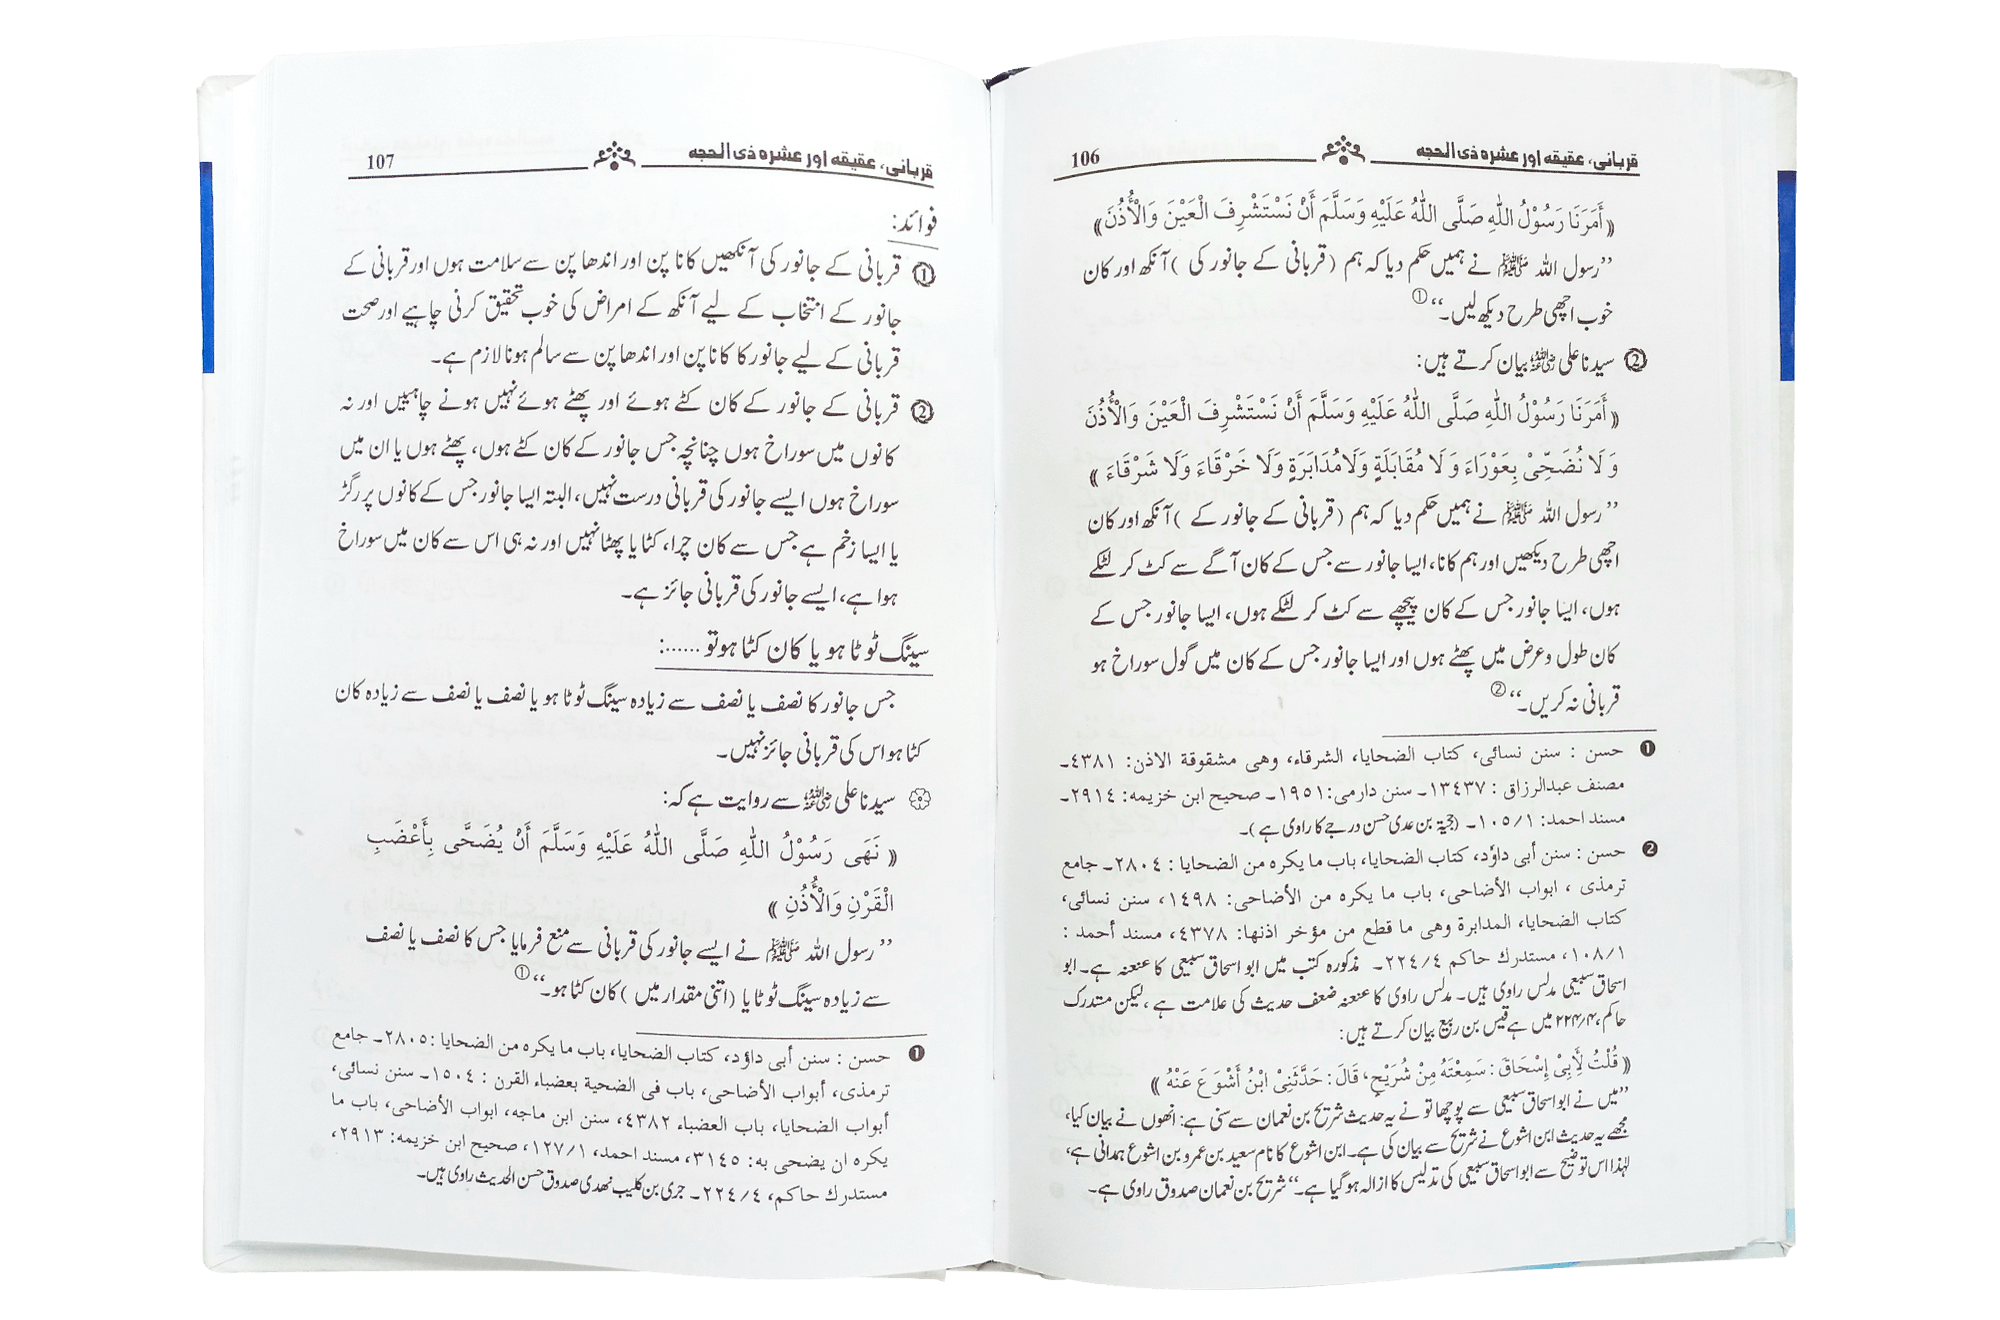 قربانی، عقیقہ اور عشرہ ذی الحجہ 106
﴿أَمَرَنَا رَسُوْلُ اللّٰهِ صَلَّى اللّٰهُ عَلَيْهِ وَسَلَّمَ أَنْ نَسْتَشْرِفَ الْعَيْنَ وَالْأُذُنَ﴾
’’رسول اللہ ﷺ نے ہمیں حکم دیا کہ ہم (قربانی کے جانور کی) آنکھ اور کان
خوب اچھی طرح دیکھ لیں۔‘‘①
② سیدنا علی رضی اللہ عنہ بیان کرتے ہیں:
﴿أَمَرَنَا رَسُوْلُ اللّٰهِ صَلَّى اللّٰهُ عَلَيْهِ وَسَلَّمَ أَنْ نَسْتَشْرِفَ الْعَيْنَ وَالْأُذُنَ
وَلَا نُضَحِّيْ بِعَوْرَاءَ وَلَا مُقَابَلَةٍ وَلَا مُدَابَرَةٍ وَلَا خَرْقَاءَ وَلَا شَرْقَاءَ﴾
’’رسول اللہ ﷺ نے ہمیں حکم دیا کہ ہم (قربانی کے جانور کے) آنکھ اور کان
اچھی طرح دیکھیں اور ہم کانا، ایسا جانور سے جس کے کان آگے سے کٹ کر لٹکے
ہوں، ایسا جانور جس کے کان پیچھے سے کٹ کر لٹکے ہوں، ایسا جانور جس کے
کان طول و عرض میں پھٹے ہوں اور ایسا جانور جس کے کان میں گول سوراخ ہو
قربانی نہ کریں۔‘‘②
❶ حسن : سنن نسائی، کتاب الضحایا، الشرقاء، وهی مشقوقة الاذن: ٤٣٨١۔
مصنف عبدالرزاق : ١٣٤٣٧۔ سنن دارمی: ١٩٥١۔ صحیح ابن خزیمه: ٢٩١٤۔
مسند احمد: ١/١٠٥۔ (حجیۃ بن عدی حسن درجے کا راوی ہے)۔
❷ حسن : سنن أبی داؤد، کتاب الضحایا، باب ما یکره من الضحایا : ٢٨٠٤۔ جامع
ترمذی ، ابواب الأضاحی، باب ما یکره من الأضاحی: ١٤٩٨، سنن نسائی،
کتاب الضحایا، المدابرة وهی ما قطع من مؤخر اذنها: ٤٣٧٨، مسند أحمد :
١/١٠٨، مستدرك حاکم ٤/٢٢٤۔ مذکورہ کتب میں ابو اسحاق سبیعی کا عنعنہ ہے۔ ابو
اسحاق سبیعی مدلس راوی ہیں۔ مدلس راوی کا عنعنہ ضعف حدیث کی علامت ہے، لیکن مستدرک
حاکم، ۴/۲۲۴ میں ہے قیس بن ربیع بیان کرتے ہیں:
﴿قُلْتُ لِأَبِيْ إِسْحَاقَ: سَمِعْتَهُ مِنْ شُرَيْحٍ، قَالَ: حَدَّثَنِيْ ابْنُ أَشْوَعَ عَنْهُ﴾
’’میں نے ابو اسحاق سبیعی سے پوچھا تو نے یہ حدیث شریح بن نعمان سے سنی ہے: انھوں نے بیان کیا،
مجھے یہ حدیث ابن اشوع نے شریح سے بیان کی ہے۔ ابن اشوع کا نام سعید بن عمرو بن اشوع ہمدانی ہے،
لہٰذا اس توضیح سے ابو اسحاق سبیعی کی تدلیس کا ازالہ ہو گیا ہے۔‘‘ شریح بن نعمان صدوق راوی ہے۔
قربانی، عقیقہ اور عشرہ ذی الحجہ 107
فوائد:
① قربانی کے جانور کی آنکھیں کانا پن اور اندھا پن سے سلامت ہوں اور قربانی کے
جانور کے انتخاب کے لیے آنکھ کے امراض کی خوب تحقیق کرنی چاہیے اور صحت
قربانی کے لیے جانور کا کانا پن اور اندھا پن سے سالم ہونا لازم ہے۔
② قربانی کے جانور کے کان کٹے ہوئے اور پھٹے ہوئے نہیں ہونے چاہییں اور نہ
کانوں میں سوراخ ہوں چنانچہ جس جانور کے کان کٹے ہوں، پھٹے ہوں یا ان میں
سوراخ ہوں ایسے جانور کی قربانی درست نہیں، البتہ ایسا جانور جس کے کانوں پر رگڑ
یا ایسا زخم ہے جس سے کان چرا، کٹا یا پھٹا نہیں اور نہ ہی اس سے کان میں سوراخ
ہوا ہے، ایسے جانور کی قربانی جائز ہے۔
سینگ ٹوٹا ہو یا کان کٹا ہو تو ......:
جس جانور کا نصف یا نصف سے زیادہ سینگ ٹوٹا ہو یا نصف یا نصف سے زیادہ کان
کٹا ہو اس کی قربانی جائز نہیں۔
سیدنا علی رضی اللہ عنہ سے روایت ہے کہ:
﴿نَهَى رَسُوْلُ اللّٰهِ صَلَّى اللّٰهُ عَلَيْهِ وَسَلَّمَ أَنْ يُضَحَّى بِأَعْضَبِ
الْقَرْنِ وَالْأُذُنِ﴾
’’رسول اللہ ﷺ نے ایسے جانور کی قربانی سے منع فرمایا جس کا نصف یا نصف
سے زیادہ سینگ ٹوٹا یا (اتنی مقدار میں) کان کٹا ہو۔‘‘①
❶ حسن : سنن أبی داؤد، کتاب الضحایا، باب ما یکره من الضحایا :٢٨٠٥۔ جامع
ترمذی، أبواب الأضاحی، باب فی الضحیة بعضباء القرن : ١٥٠٤۔ سنن نسائی،
أبواب الضحایا، باب العضباء ٤٣٨٢، سنن ابن ماجه، ابواب الأضاحی، باب ما
یکره ان یضحی به: ٣١٤٥، مسند احمد، ١/١٢٧، صحیح ابن خزیمه: ٢٩١٣،
مستدرك حاکم، ٤/٢٢٤۔ جری بن کلیب نھدی صدوق حسن الحدیث راوی ہیں۔